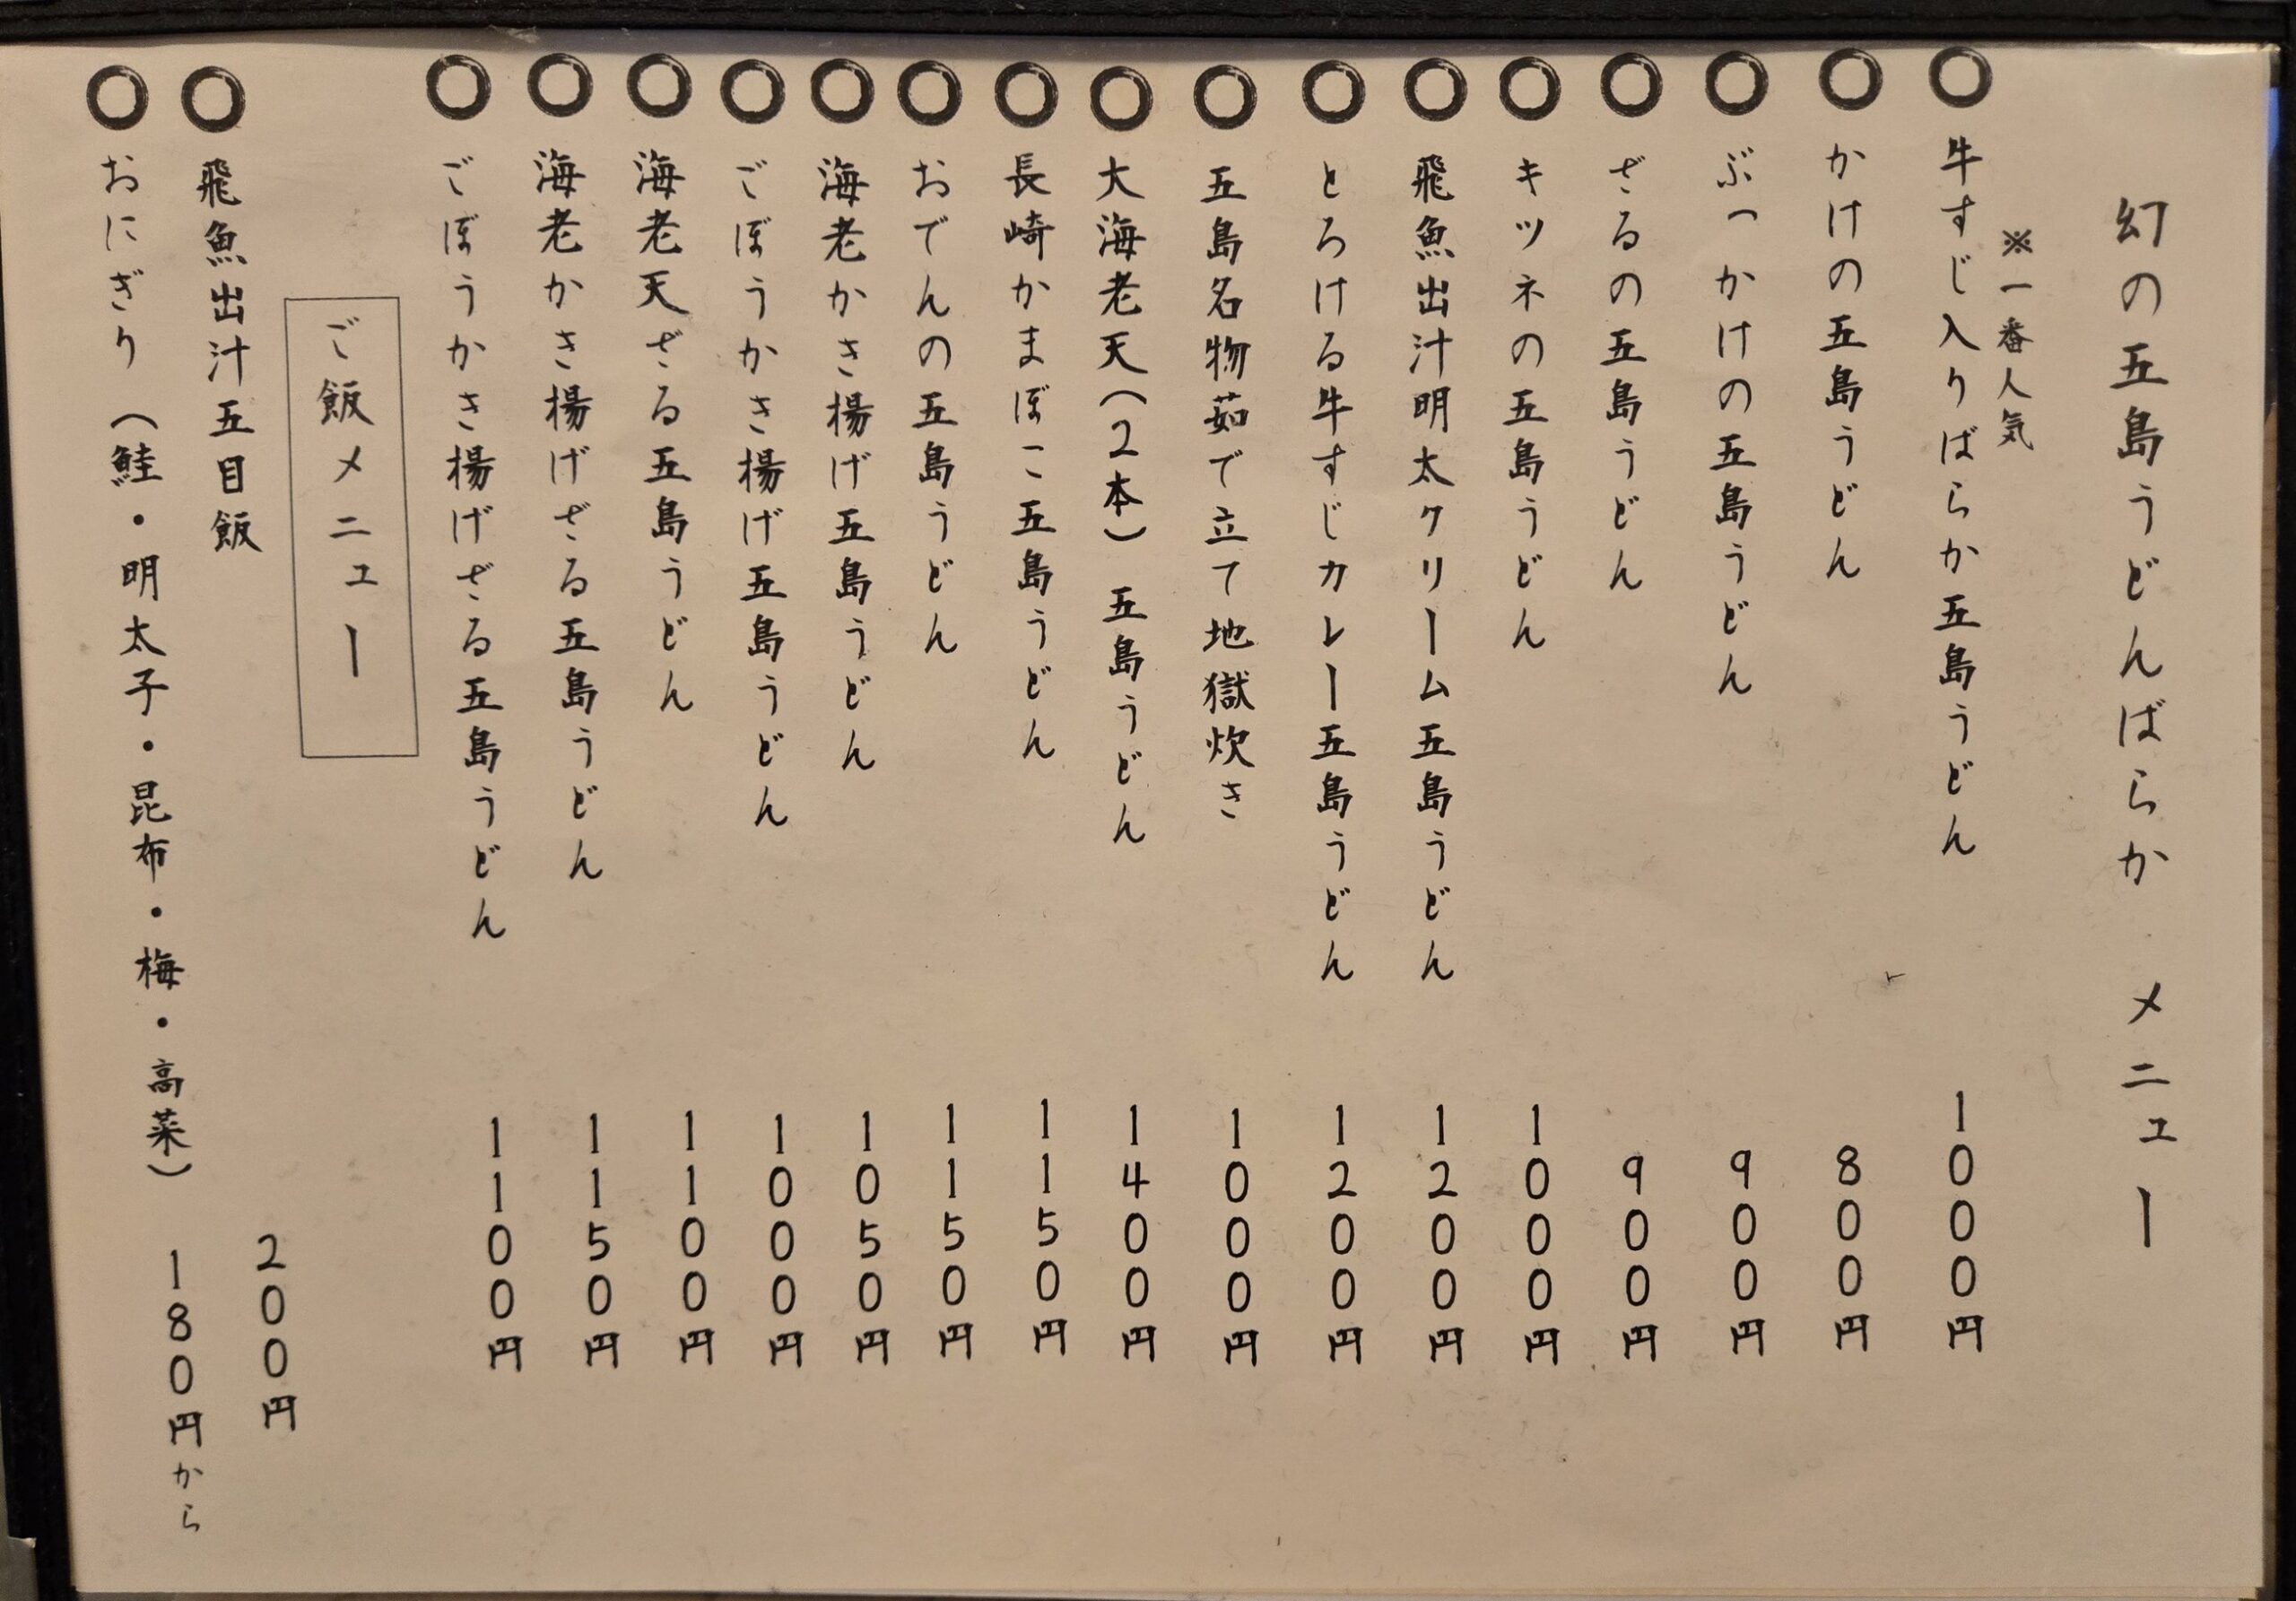 幻の五島うどんばらか メニュー
※一番人気
牛すじ入りばらか五島うどん 1000円
かけの五島うどん 800円
ぶっかけの五島うどん 900円
ざるの五島うどん 900円
キツネの五島うどん 1000円
飛魚出汁明太クリーム五島うどん 1200円
とろける牛すじカレー五島うどん 1200円
五島名物茹で立て地獄炊き 1000円
大海老天(2本)五島うどん 1400円
長崎かまぼこ五島うどん 1150円
おでんの五島うどん 1150円
海老かき揚げ五島うどん 1050円
ごぼうかき揚げ五島うどん 1000円
海老天ざる五島うどん 1100円
海老かき揚げざる五島うどん 1150円
ごぼうかき揚げざる五島うどん 1100円
ご飯メニュー
飛魚出汁五目飯 200円
おにぎり(鮭・明太子・昆布・梅・高菜) 180円から